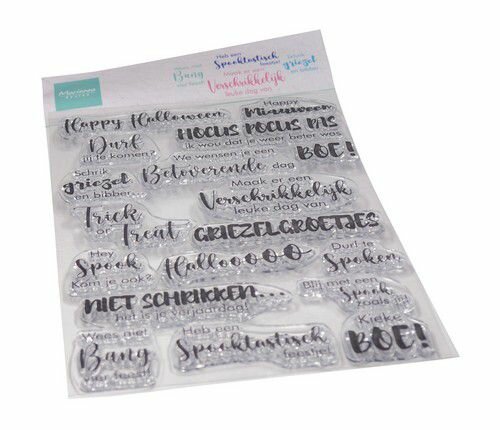 Marianne
DESIGN
Wees niet
Bang
vier feest!
Heb een
Spooktastisch
feestje!
Maak er een
Verschrikkelijk
leuke dag van
Schrik
griezel
en bibber
Happy Halloween
Happy
Miauween
Durf
jij te komen?
HOCUS POCUS PAS
ik wou dat je weer beter was
Schrik
griezel
en bibber...
We wensen je een
Betoverende dag
BOE!
Maak er een
Verschrikkelijk
leuke dag van
Trick
or
Treat
GRIEZELGROETJES
Hey
Spook
Kom je ook?
Hallooooo
Durf te
Spoken
NIET SCHRIKKEN...
het is je verjaardag!
Blij met een
Spook
zoals jij!
Wees niet
Bang
vier feest!
Heb een
Spooktastisch
feestje!
Kieke
BOE!